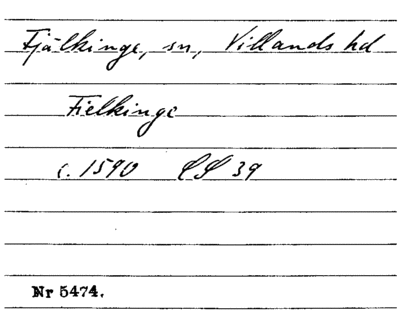 Fjälkinge, sn, Villands hd
Fielkinge
c. 1590 39
Nr 5474.